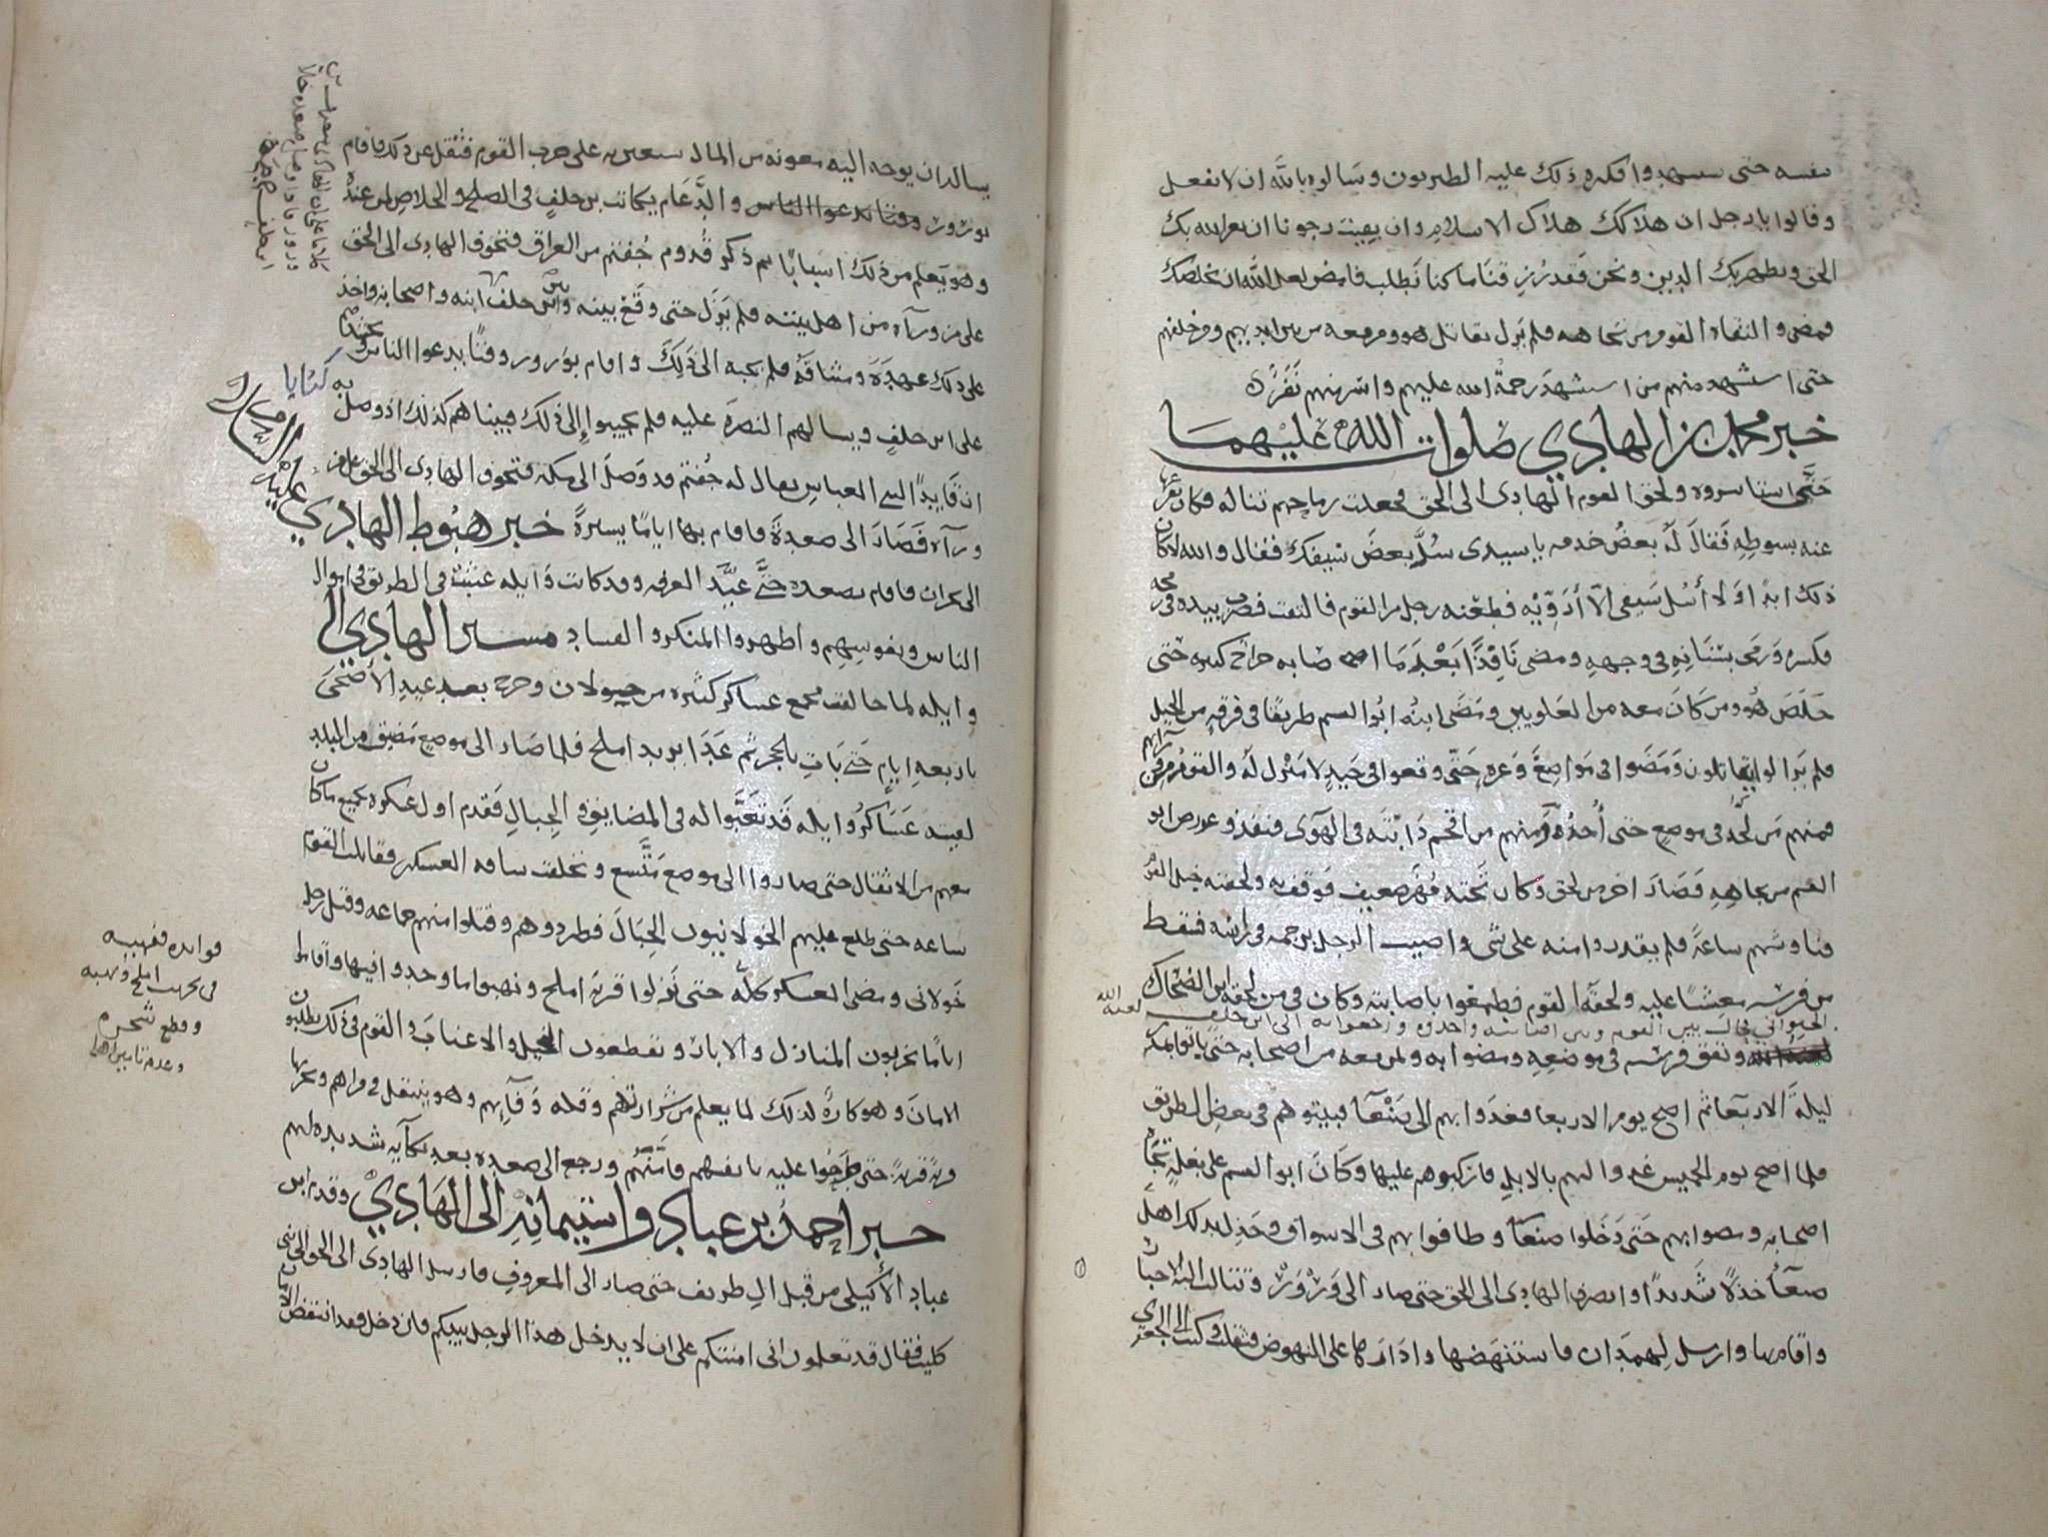 بنفسه حتى يستشهد وافكره ذلك عليه الطبريون وسالوه بالله ان لا يفعل
وقالوا يا رجل ان هلاكك هلاك الاسلام وان بقيت رجونا ان يعز الله بك
الحق ويظهر بك الدين ونحن فقد رزقنا ما كنا نطلب فامض لعل الله ان يخلصك
فمضى والتقاه القوم من تجاهه فلم يزل يقاتل هو ومن معه من بين ايديهم ومن خلفهم
حتى استشهد منهم من استشهد رحمة الله عليهم واسر منهم نفر
خبر محمد بن الهادي صلوات الله عليهما
حتى استاسروه ولحق القوم الهادى الى الحق فجعلت رماحهم تناله فكان
عنه بسوطه فقال له بعض خدمه يا سيدى سل بعض سيفك فقال والله لا كان
ذلك ابدا ولا أسل سيفي الا أدوّيه فطعنه رجل من القوم فالتفت فضرب بيده في رمحه
فكسره ورمى بسنانه في وجهه ومضى نافذا بعد ما اصابه جراح كثيره حتى
خلص هو ومن كان معه من العلويين ومضى ابنه ابو القسم طريقا في فرقه من الخيل
فلم يزالوا يقاتلون ومضوا في مواضع وعره حتى وقعوا في حيد لا منزل له والقوم من
فمنهم من لحق في موضع حتى أخذوه ومنهم من اقحم دابته في الهوى فنفذ وعورض ابو
القسم من تجاهه فصار اخر من لحق وكان تحته مهر ضعيف فوقف به ولحقته خيل القوم
فناوشهم ساعة فلم يقدروا منه على شى واصيب الرجل برجمه في راسه فسقط
من فرسه مغشيا عليه ولحقه القوم فطمعوا باصابته وكان في من لحقه ابن الضحاك
لعنه الله
ونفق فرسه في موضعه ومضوا به وبمن معه من اصحابه حتى باتوا
ليلة الاربعا ثم اصبح يوم الاربعا فغدوا بهم الى فبيتوهم في بعض الطريق
فلما اصبح يوم الخميس غدوا لهم بالابل فاركبوهم عليها وكان ابو القسم على بغله تجاه
اصحابه ومضوا بهم حتى دخلوا صنعا وطافوا بهم في الاسواق وخذل لذلك اهل
صنعا خذلا شديدا وانصرف الهادى الى الحق حتى صار الى ورور وتنالت اليه الاخبار
واقام بها وارسل لهمدان فاستنهضها وادارها على النهوض فثقلت وكتب الى
يساله ان يوجه اليه بمعونه من المال يستعين به على حرب القوم فثقل عن ذلك فاقام
بورور والدعام يكاتب بن خلف في الصلح والخلاص لمن عنده
وهو يعلم من ذلك اسبابا ثم ذكر قدوم جفتم من العراق فتخوف الهادى الى الحق
على من ورآه من اهل بيته فلم يزل حتى وقع بينه وبين بن خلف ابنه واصحابه واخذ
على ذلك عهده وميثاقه فلم يجبه الى ذلك واقام بورور وقتا يدعوا الناس
على ابن خلف ويسالهم النصره عليه فلم يجيبوا إلى ذلك فبينا هم كذلك اذ وصل به كتابا
ان قايدا لبني العباس يقال له جفتم قد وصل الى مكه فتخوف الهادى الى الحق على من
ورآه فصار الى صعدة فاقام بها اياما يسيرة خبر هبوط الهادي عليه السلام
الى نجران فاقام بصعده حتى عيد العرفه وقد كانت وايله عبثت في الطريق في اموال
الناس ونفوسهم واظهروا المنكر والفساد مسير الهادي الى
وايله لما خالفت فجمع عساكر كثيره من خولان وخرج بعد عيد الأضحى
باربعه ايام حتى بات ثم غدا يريد املح فلما صار الى موضع مضيق من البلد
لقيته عساكر وايله قد تعبوا له في المضايق والجبال فقدم اول عسكره بجميع ما كان
معهم من الاثقال حتى صاروا الى موضع متسع وتخلف ساقه العسكر فقاتلت القوم
ساعه حتى طلع عليهم الخولانيون الجبال فطردوهم وقتلوا منهم جماعه وقتل رجل
خولانى ومضى العسكر كله حتى نزلوا قرية املح ونهبوا ما وجدوا فيها واقاموا
اياما يخربون المنازل والابار ويقطعون النخيل والاعناب والقوم في ذلك يطلبون
الامان وهو كاره لذلك لما يعلم من شرارتهم وقله وفآيهم وهو ينتقل في قراهم ويخربها
قرية قرية حتى طرحوا عليه بانفسهم فامنهم ورجع الى صعده بعد نكايه شديده لهم
خبر احمد بن عباد واستيمانه الى الهادي وقدم ابن
عباد الأكيلى من قبل ال طريف حتى صار الى المعروف فارسل الهادى الى الحق الى بنى
كليب فقال قد تعلمون انى امنتكم على ان لا يدخل هذا الرجل بلدكم فان دخل فقد انتقض الامان
فوايده فقهيه
في تخريب املح ونهبه
وقطع شجره
وعدم تامين اهلها